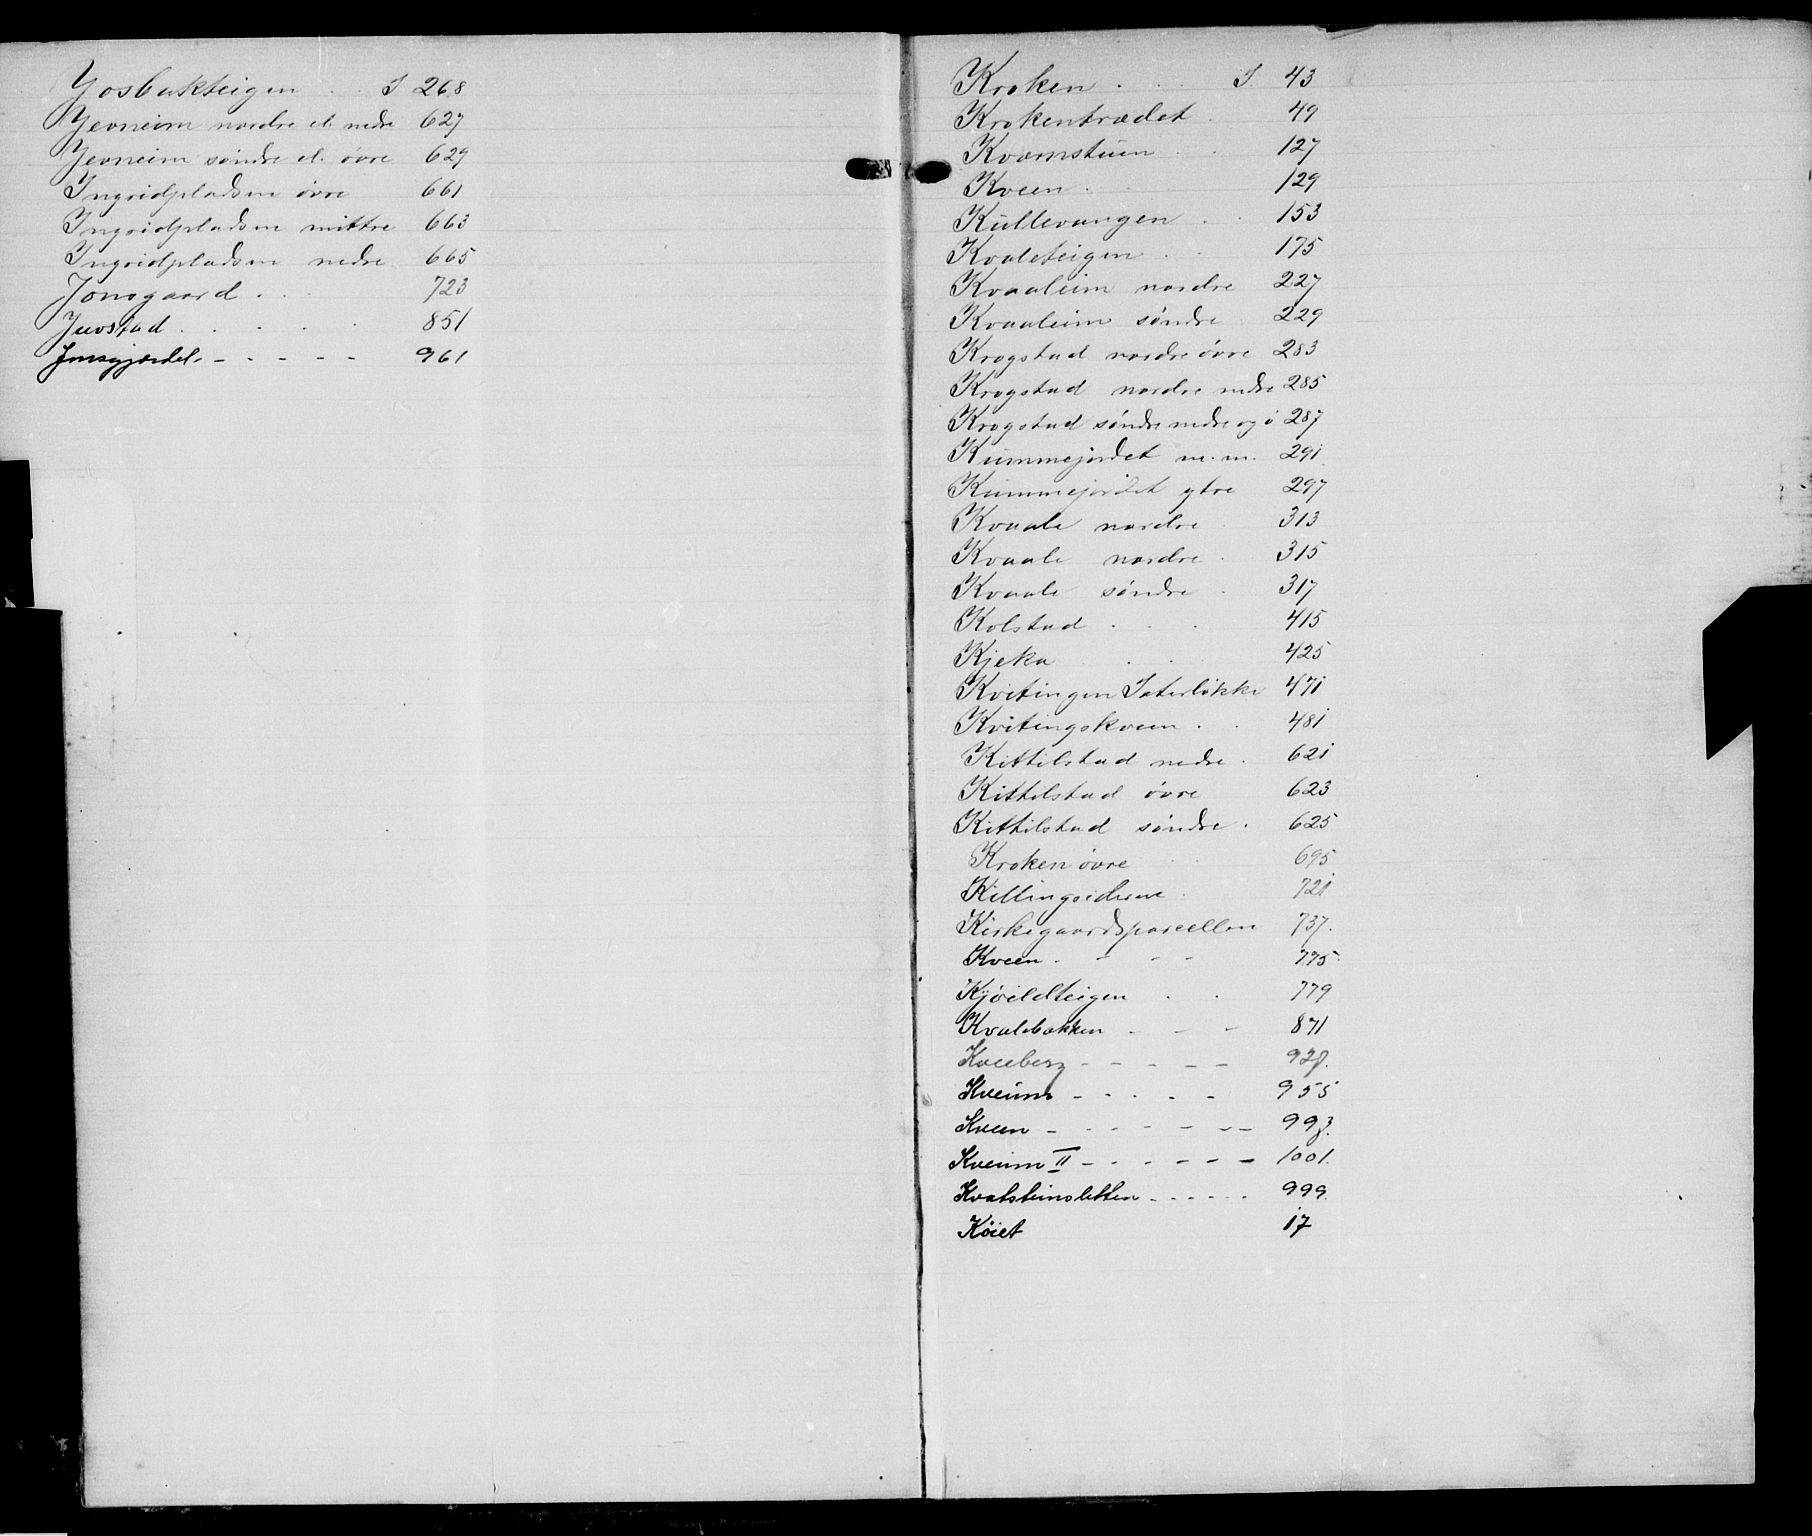 Josbakteigen . . I 268
Jevneim nordre el. nedre 627
Jevneim søndre el. øvre 629
Ingridpladsen øvre 661
Ingridpladsen mittre 663
Ingridpladsen nedre 665
Jonsgaard . . . 723
Juvstad . . . . . 851
Jonsgjordet. - - - - - 961
Kroken . . . I. 43
Krokentrædet . 49
Kvamstuen . . 127
Kveen . . 129
Kullevangen . . 153
Kvaleteigen . . 175
Kvaaleim nordre 227
Kvaaleim søndre 229
Krogstad nordre øvre 283
Krogstad nordre nedre 285
Krogstad søndre nedre og ø 287
Kummejordet m.m. 291
Kummejordet ytre 297
Kvaale nordre 313
Kvaale nordre . 315
Kvaale søndre . 317
Kolstad . . . 415
Kjeka . . 425
Kvitingen Sæterløkke 471
Kvitingskveen . . 481
Kittilstad nedre . 621
Kittilstad øvre 623
Kittilstad søndre . 625
Kroken øvre 695
Killingviderne . 721
Kirkegaardsparcellen 737.
Kveen - - - - 775
Kjøieldteigen . . 779
Kvalebakken - - - 871
Kveeberg - - - - - 927.
Kveum - - - - - 955
Kveen - - - - - - - 993.
Kveum II - - - - - - - 1001.
Kvatsteinsletten - - - - - - 999.
Køiet 17